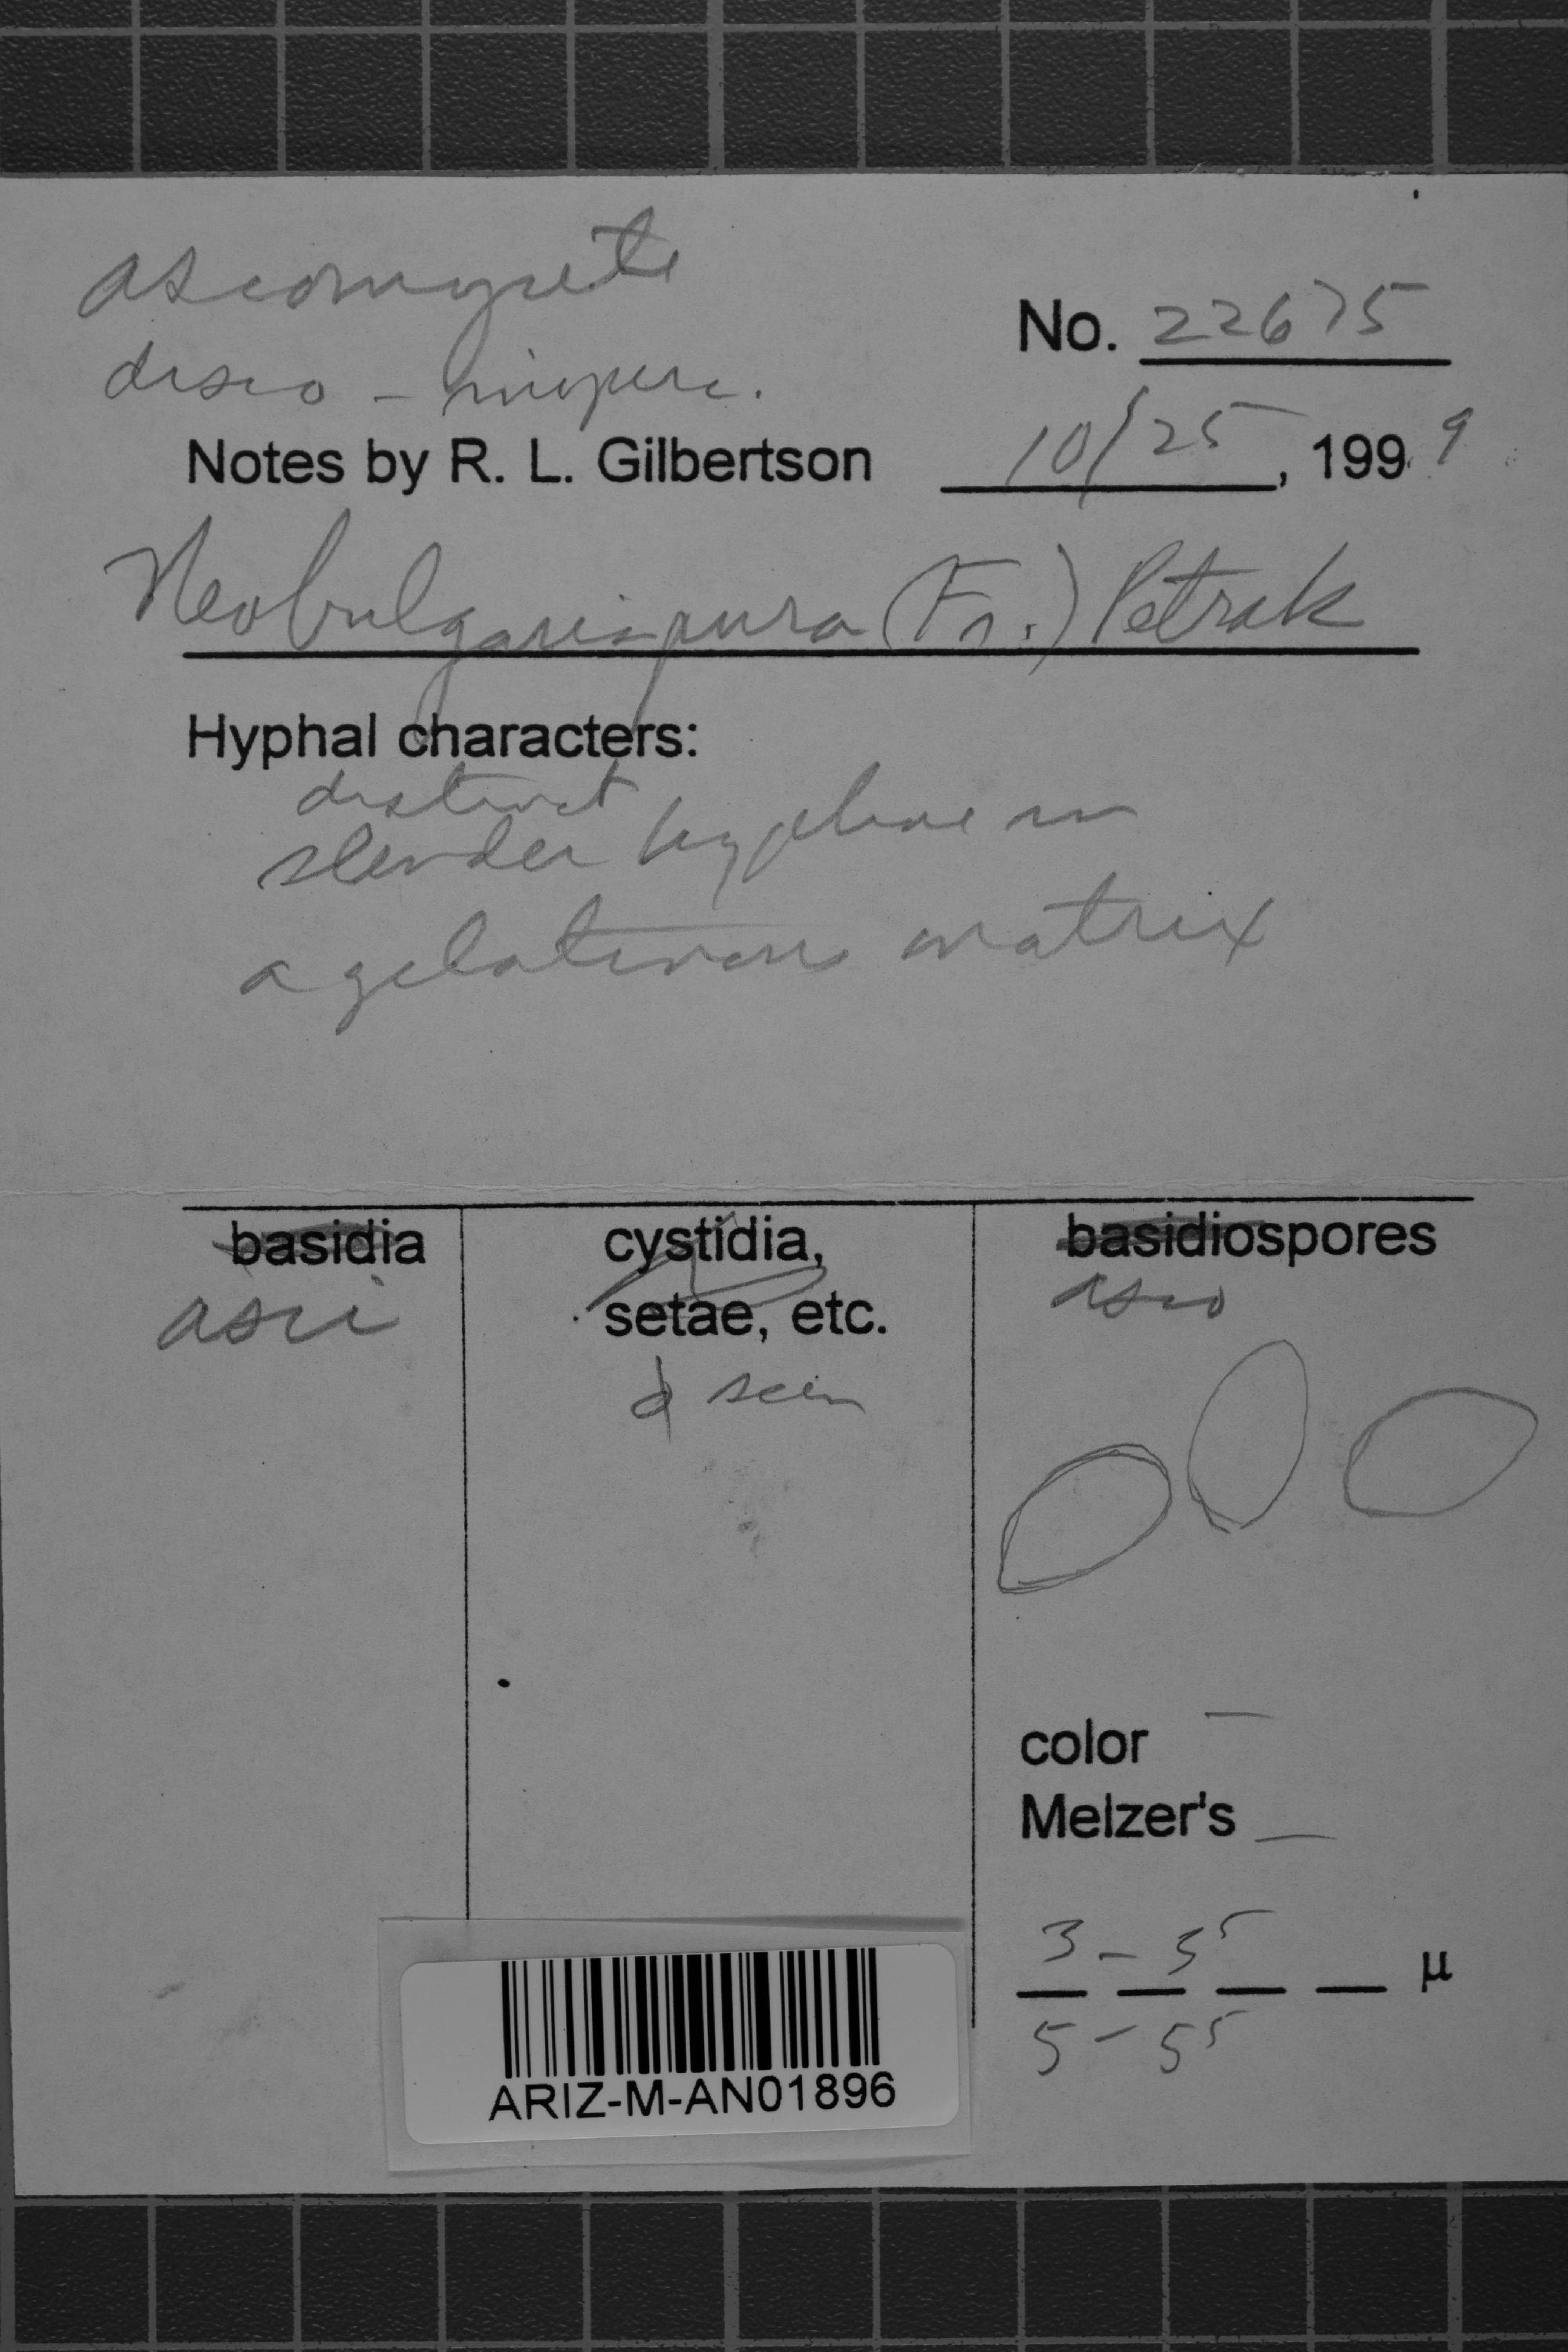 ascomycete
No. 22675
disco - inoperc.
Notes by R. L. Gilbertson 10/25, 1999
Neobulgaria pura (Fr.) Petrak
Hyphal characters:
distinct
slender hyphae in
a gelatinous matrix
basidia cystidia, basidiospores
asci setae, etc. asco
seen
color —
Melzer's —
3 - 3 5
_ _ _ _ µ
5 - 5 5
ARIZ-M-AN01896